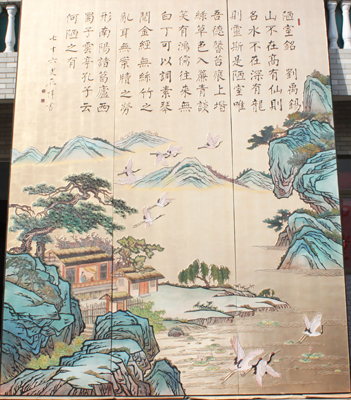 陋室銘 劉禹錫
山不在高有仙則
名水不在深有龍
則靈斯是陋室唯
吾德馨苔痕上堦
綠草色入簾青談
笑有鴻儒往來無
白丁可以調素琴
閱金經無絲竹之
亂耳無案牘之勞
形南陽諸葛廬西
蜀子雲亭孔子云
何陋之有